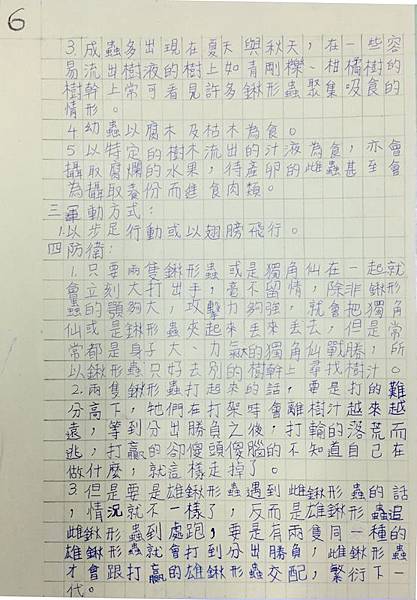 6
3成蟲多出現在夏天與秋天，在一些容
易流出樹液的樹上如青剛櫟、柑橘樹的
樹幹上常可看見許多鍬形蟲聚集吸食的
情形。
4幼蟲以腐木及枯木為食。
5以特定的樹木流出的汁液為食，亦會
攝取腐爛的水果，待產卵的雌蟲甚至會
為攝取養份而進食肉類。
三運動方式：
1.以步足行動或以翅膀飛行。
四防衛：
1.只要兩隻鍬形蟲或是獨角仙在一起就
會立刻大打出手，毫不留情，除非鍬形
蟲的顎夠大，攻擊力夠強，就會把獨角
仙或是鍬形蟲夾起來丟來丟去，但是常
常都是身子大、力氣的獨角仙戰勝，所
以鍬形蟲只好去別的樹幹上尋找樹汁。
2.兩隻鍬形蟲打起來的話，要是打的難
分高下，牠們在打架時會離樹汁越來越
遠，等到分出勝負之後，打輸的落荒而
逃，打贏的卻傻頭傻腦的不知道自己在
做什麼，就這樣走掉了。
3但是要是雄鍬形蟲遇到雌鍬形蟲的話
，情況就不一樣了，反而是雄鍬形蟲追
雌鍬形蟲到處跑，要是有兩隻同一種的
雄鍬形蟲就會打到分出勝負，雌鍬形蟲
才會跟打贏的雄鍬形蟲交配，繁衍下一
代。